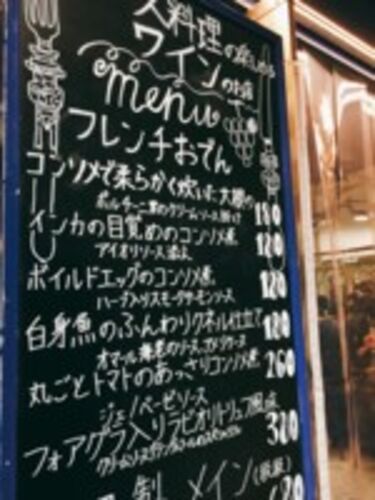 料理の
ワインのお店
menu
フレンチおでん
コンソメで柔らかく炊いた大根
ポルチーニ茸のクリームソース掛け 180
インカの目覚めのコンソメ煮
アイオリソース添え 120
ボイルドエッグのコンソメ煮
ハーブ入りスモークサーモンソース 120
白身魚のふんわりクネル仕立て 180
オマール海老のソース
丸ごとトマトのあっさりコンソメ煮 260
ジェノベーゼソース
フォアグラ入りラビオリトリュフ風味 380
クリームソース
製 メイン